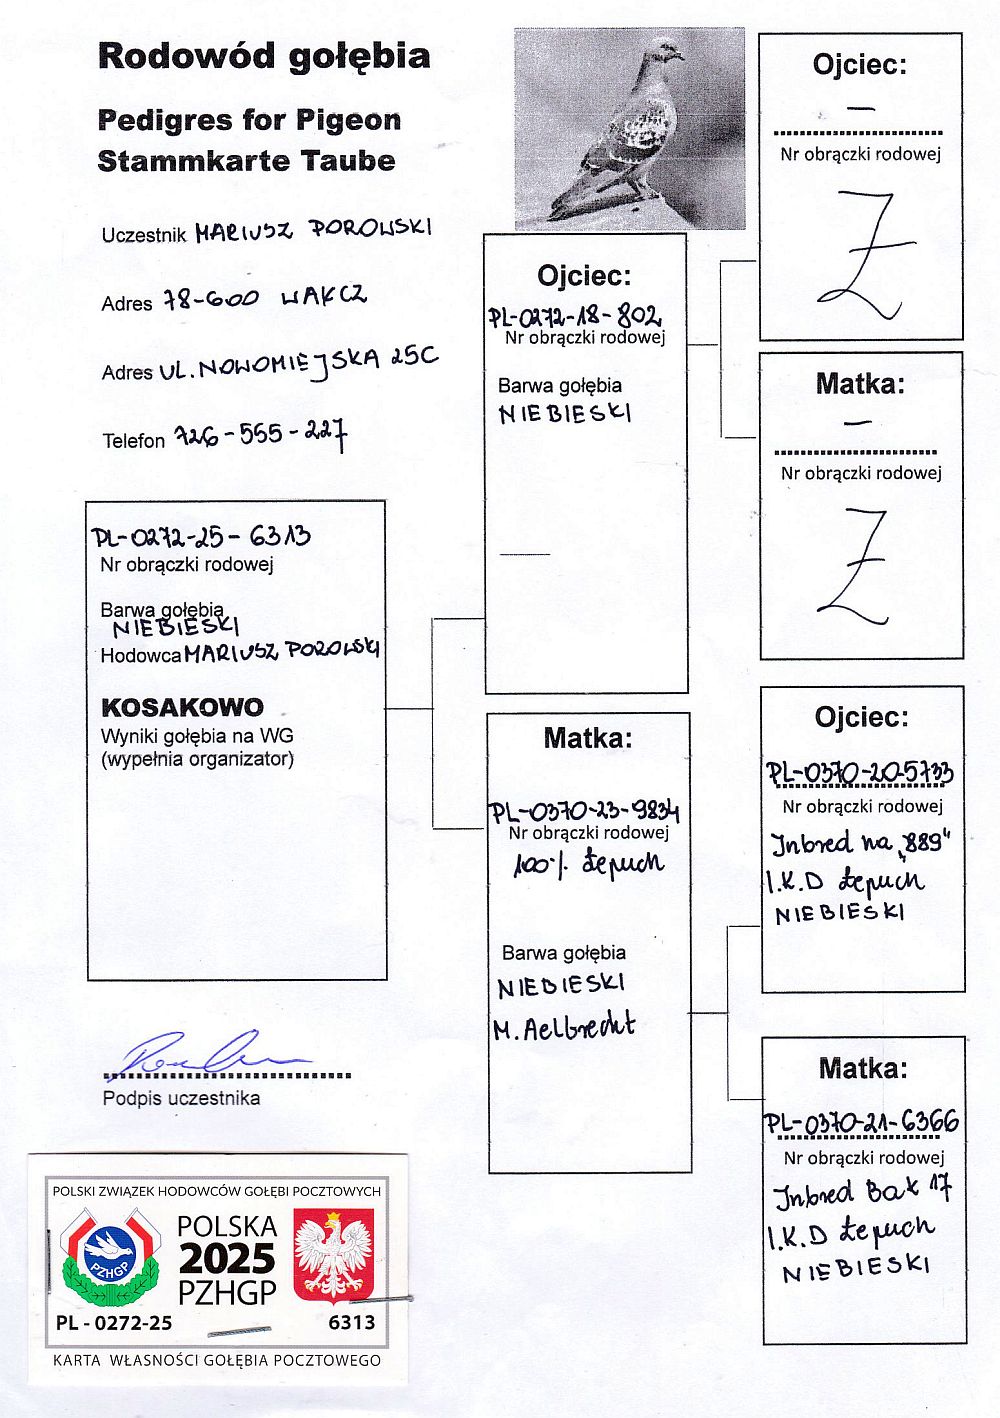 Rodowód gołębia
Pedigres for Pigeon
Stammkarte Taube
Uczestnik MARIUSZ POROWSKI
Adres 78-600 WAŁCZ
Adres UL. NOWOMIEJSKA 25C
Telefon 726-555-227
PL-0272-25-6313
Nr obrączki rodowej
Barwa gołębia
NIEBIESKI
Hodowca MARIUSZ POROWSKI
KOSAKOWO
Wyniki gołębia na WG
(wypełnia organizator)
Podpis uczestnika
Ojciec:
PL-0272-18-802
Nr obrączki rodowej
Barwa gołębia
NIEBIESKI
Matka:
PL-0370-23-9834
Nr obrączki rodowej
100% Łepuch
Barwa gołębia
NIEBIESKI
M. Aelbrecht
Ojciec:
–
Nr obrączki rodowej
Matka:
–
Nr obrączki rodowej
Ojciec:
PL-0370-20-5733
Nr obrączki rodowej
Inbred na „889"
I.K.D Łepuch
NIEBIESKI
Matka:
PL-0370-21-6366
Nr obrączki rodowej
Inbred Bak 17
I.K.D Łepuch
NIEBIESKI
POLSKI ZWIĄZEK HODOWCÓW GOŁĘBI POCZTOWYCH
PZHGP
POLSKA
2025
PZHGP
PL - 0272-25 6313
KARTA WŁASNOŚCI GOŁĘBIA POCZTOWEGO